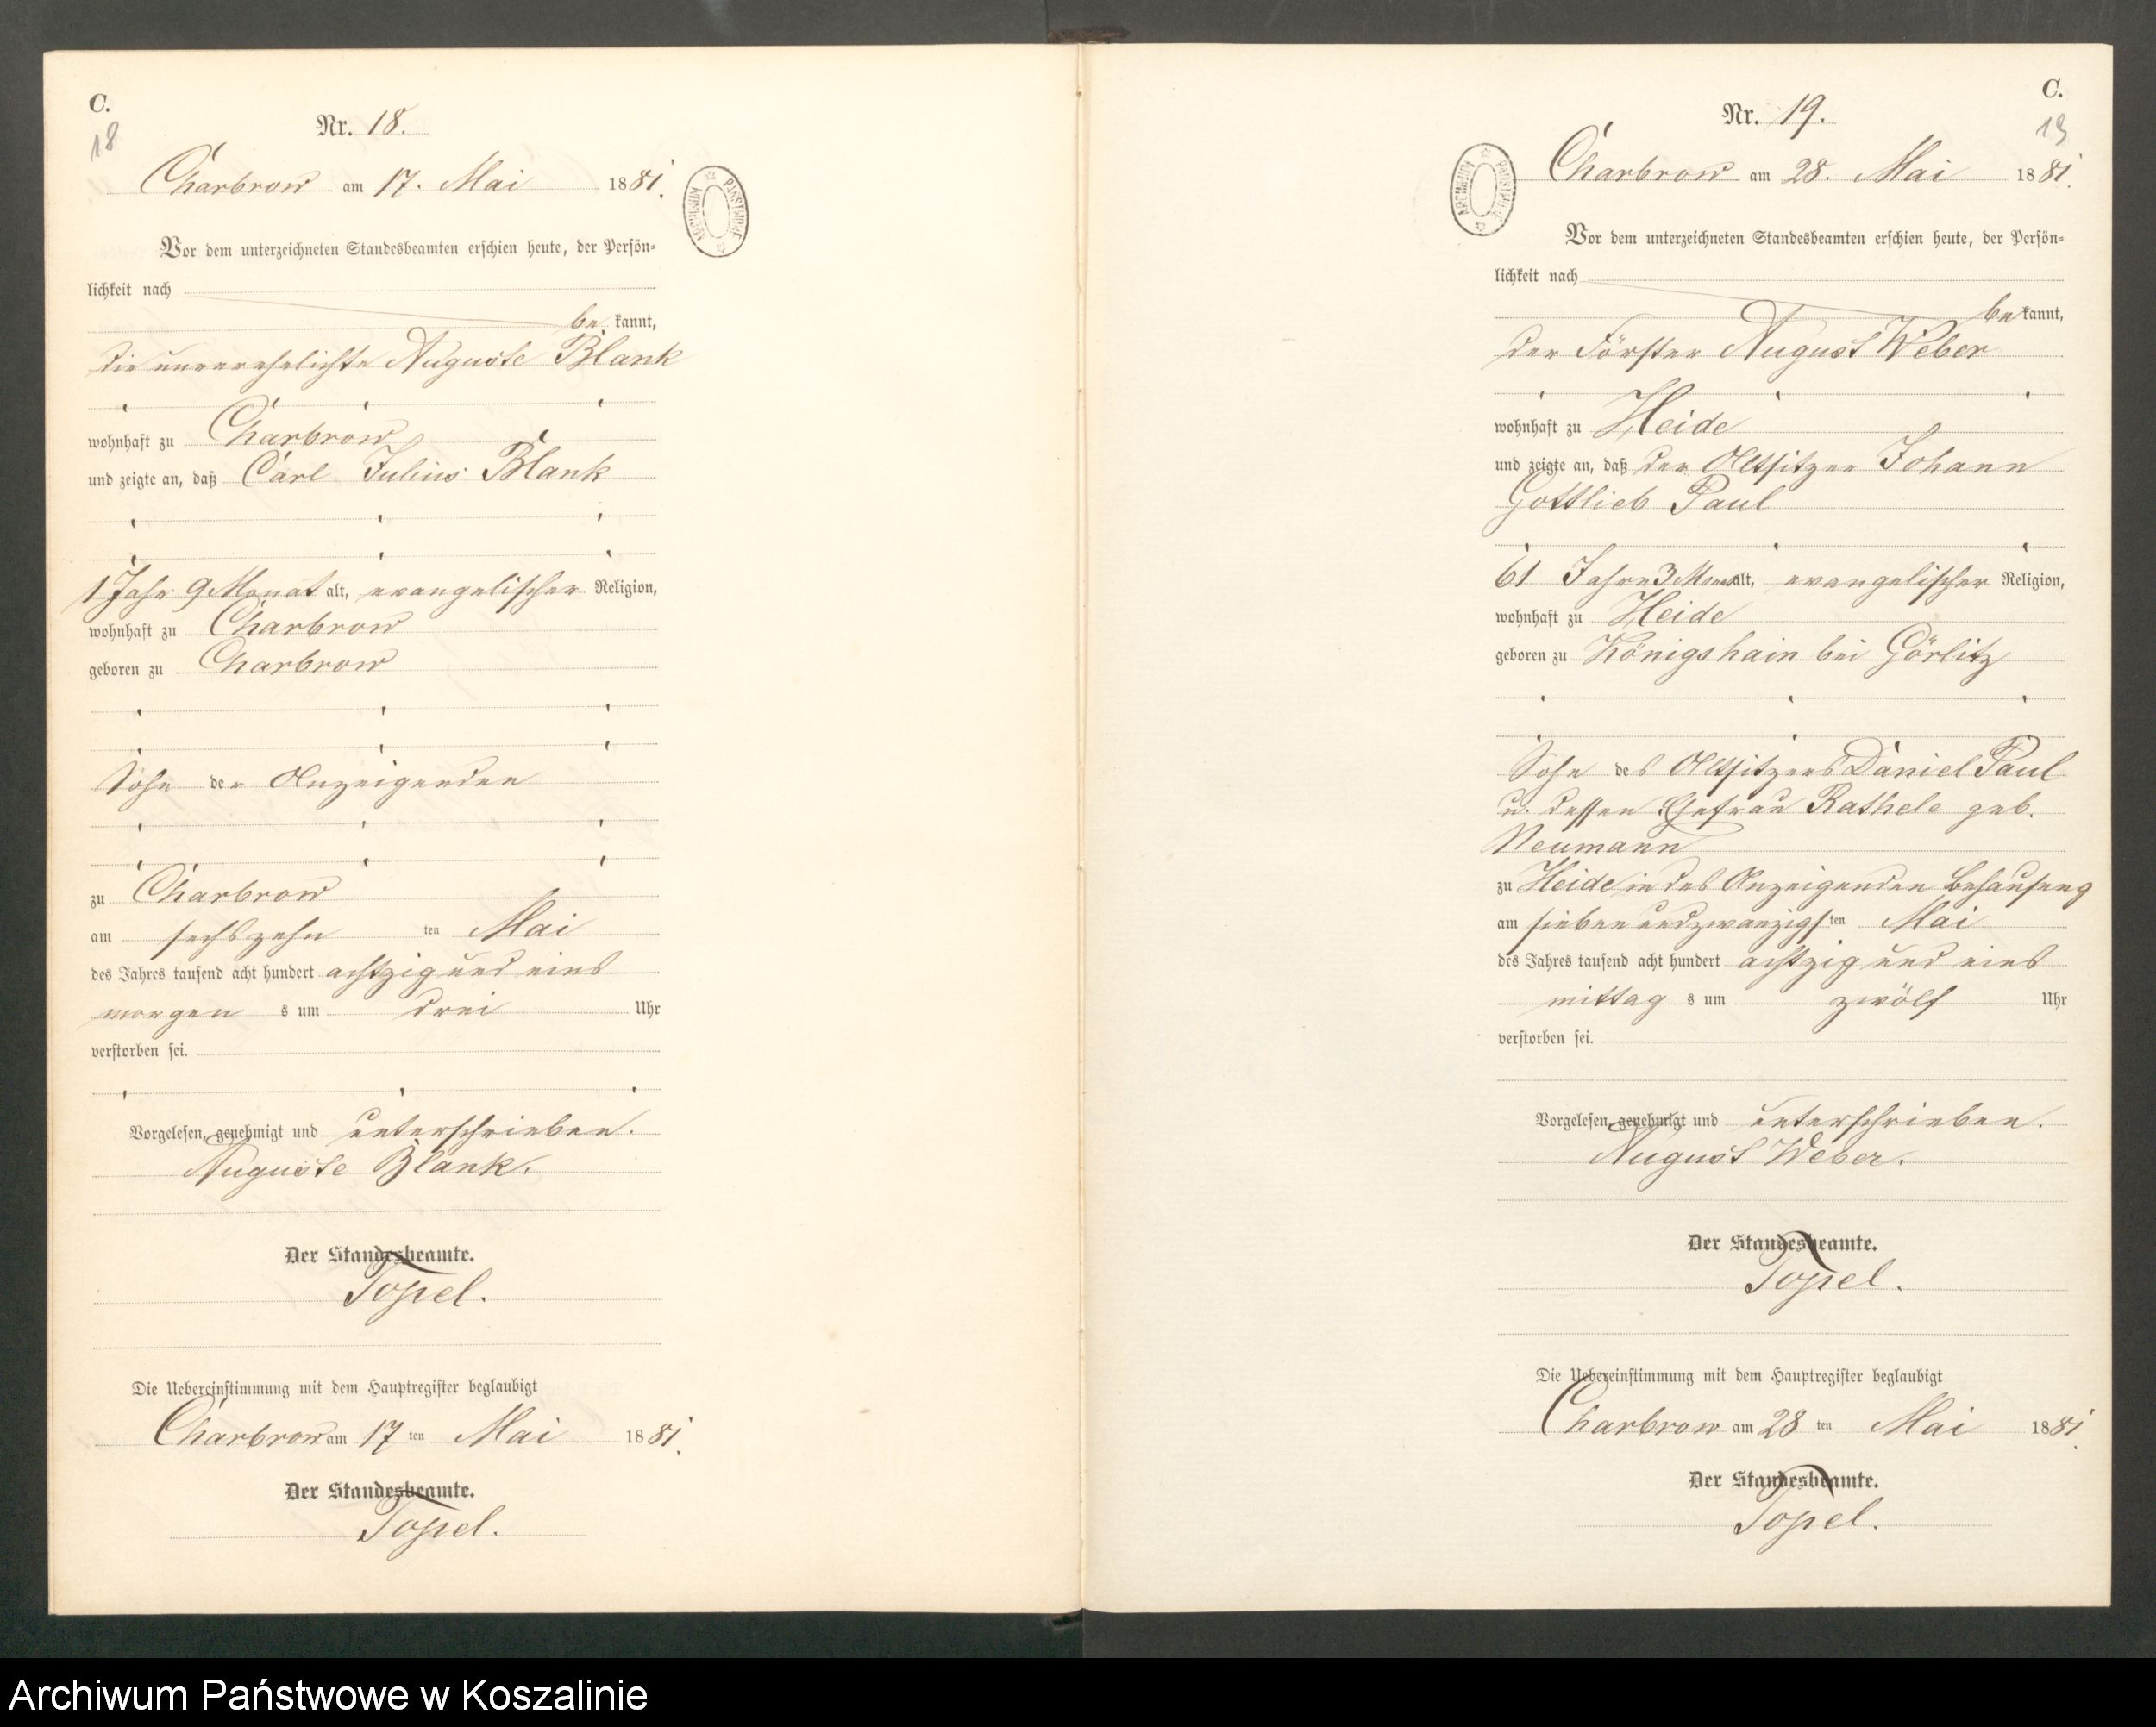 C.
18
Nr. 18.
Charbrow am 17. Mai 1881.
Vor dem unterzeichneten Standesbeamten erschien heute, der Persön=
lichkeit nach
be kannt,
die unverehelichte Auguste Blank
wohnhaft zu Charbrow
und zeigte an, daß Carl Julius Blank
1 Jahr 9 Monat alt, evangelischer Religion,
wohnhaft zu Charbrow
geboren zu Charbrow
Sohn der Anzeigenden
zu Charbrow
am sechszehn ten Mai
des Jahres tausend acht hundert achtzig und eins
morgen s um drei Uhr
verstorben sei.
Vorgelesen, genehmigt und unterschrieben.
Auguste Blank.
Der Standesbeamte.
Topel.
Die Uebereinstimmung mit dem Hauptregister beglaubigt
Charbrow am 17 ten Mai 1881.
Der Standesbeamte.
Topel.
ARCHIWUM PAŃSTWOWE
C.
19
Nr. 19.
Charbrow am 28. Mai 1881.
ARCHIWUM PAŃSTWOWE
Vor dem unterzeichneten Standesbeamten erschien heute, der Persön=
lichkeit nach
be kannt,
der Förster August Weber
wohnhaft zu Heide
und zeigte an, daß der Altsitzer Johann
Gottlieb Paul
61 Jahre 3 Monat alt, evangelischer Religion,
wohnhaft zu Heide
geboren zu Königshain bei Görlitz
Sohn des Altsitzers Daniel Paul
u. dessen Ehefrau Rathele geb.
Neumann
zu Heide in des Anzeigenden Behausung
am sieben und zwanzigsten Mai
des Jahres tausend acht hundert achtzig und eins
mittag s um zwölf Uhr
verstorben sei.
Vorgelesen, genehmigt und unterschrieben.
August Weber.
Der Standesbeamte.
Topel.
Die Uebereinstimmung mit dem Hauptregister beglaubigt
Charbrow am 28 ten Mai 1881.
Der Standesbeamte.
Topel.
Archiwum Państwowe w Koszalinie